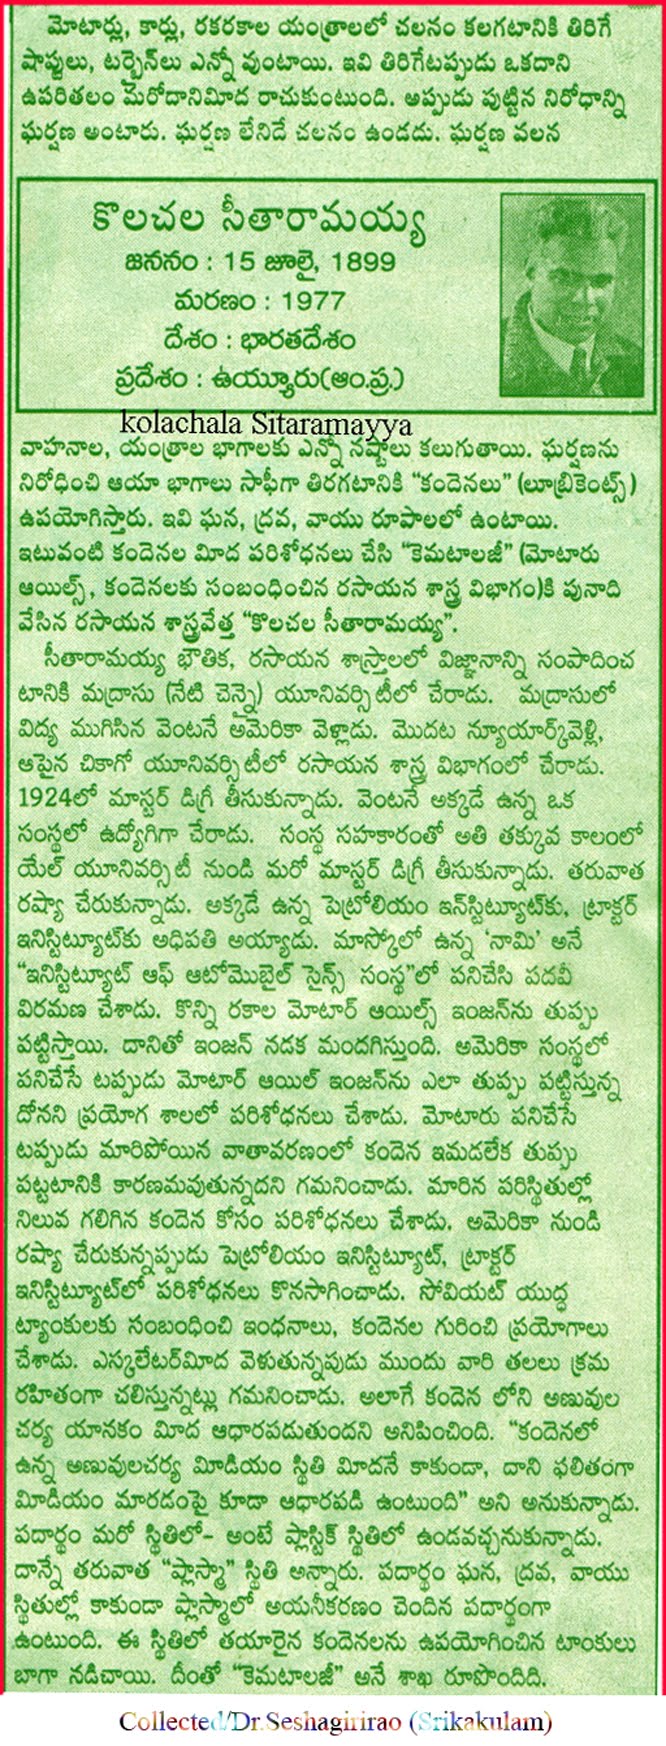 మోటార్లు, కార్లు, రకరకాల యంత్రాలలో చలనం కలగటానికి తిరిగే
షాఫ్టులు, టర్బైన్‌లు ఎన్నో వుంటాయి. ఇవి తిరిగేటప్పుడు ఒకదాని
ఉపరితలం మరోదానిమీద రాచుకుంటుంది. అప్పుడు పుట్టిన నిరోధాన్ని
ఘర్షణ అంటారు. ఘర్షణ లేనిదే చలనం ఉండదు. ఘర్షణ వలన
కొలచల సీతారామయ్య
జననం : 15 జూలై, 1899
మరణం : 1977
దేశం : భారతదేశం
ప్రదేశం : ఉయ్యూరు(ఆం.ప్ర.)
kolachala Sitaramayya
వాహనాల, యంత్రాల భాగాలకు ఎన్నో నష్టాలు కలుగుతాయి. ఘర్షణను
నిరోధించి ఆయా భాగాలు సాఫీగా తిరగటానికి "కందెనలు" (లూబ్రికెంట్స్)
ఉపయోగిస్తారు. ఇవి ఘన, ద్రవ, వాయు రూపాలలో ఉంటాయి.
ఇటువంటి కందెనల మీద పరిశోధనలు చేసి "కెమటాలజీ" (మోటారు
ఆయిల్స్, కందెనలకు సంబంధించిన రసాయన శాస్త్ర విభాగం)కి పునాది
వేసిన రసాయన శాస్త్రవేత్త "కొలచల సీతారామయ్య".
సీతారామయ్య భౌతిక, రసాయన శాస్త్రాలలో విజ్ఞానాన్ని సంపాదించ
టానికి మద్రాసు (నేటి చెన్నై) యూనివర్సిటీలో చేరాడు. మద్రాసులో
విద్య ముగిసిన వెంటనే అమెరికా వెళ్లాడు. మొదట న్యూయార్క్‌వెళ్లి,
ఆపైన చికాగో యూనివర్సిటీలో రసాయన శాస్త్ర విభాగంలో చేరాడు.
1924లో మాస్టర్ డిగ్రీ తీసుకున్నాడు. వెంటనే అక్కడే ఉన్న ఒక
సంస్థలో ఉద్యోగిగా చేరాడు. సంస్థ సహకారంతో అతి తక్కువ కాలంలో
యేల్ యూనివర్సిటీ నుండి మరో మాస్టర్ డిగ్రీ తీసుకున్నాడు. తరువాత
రష్యా చేరుకున్నాడు. అక్కడే ఉన్న పెట్రోలియం ఇన్‌స్టిట్యూట్‌కు, ట్రాక్టర్
ఇనిస్టిట్యూట్‌కు అధిపతి అయ్యాడు. మాస్కోలో ఉన్న 'నామి' అనే
"ఇనిస్టిట్యూట్ ఆఫ్ ఆటోమొబైల్ సైన్స్ సంస్థ"లో పనిచేసి పదవీ
విరమణ చేశాడు. కొన్ని రకాల మోటార్ ఆయిల్స్ ఇంజన్‌ను తుప్పు
పట్టిస్తాయి. దానితో ఇంజన్ నడక మందగిస్తుంది. అమెరికా సంస్థలో
పనిచేసే టప్పుడు మోటార్ ఆయిల్ ఇంజన్‌ను ఎలా తుప్పు పట్టిస్తున్న
దోనని ప్రయోగ శాలలో పరిశోధనలు చేశాడు. మోటారు పనిచేసే
టప్పుడు మారిపోయిన వాతావరణంలో కందెన ఇమడలేక తుప్పు
పట్టటానికి కారణమవుతున్నదని గమనించాడు. మారిన పరిస్థితుల్లో
నిలువ గలిగిన కందెన కోసం పరిశోధనలు చేశాడు. అమెరికా నుండి
రష్యా చేరుకున్నప్పుడు పెట్రోలియం ఇనిస్టిట్యూట్, ట్రాక్టర్
ఇనిస్టిట్యూట్‌లో పరిశోధనలు కొనసాగించాడు. సోవియట్ యుద్ధ
ట్యాంకులకు సంబంధించి ఇంధనాలు, కందెనల గురించి ప్రయోగాలు
చేశాడు. ఎస్కలేటర్‌మీద వెళుతున్నపుడు ముందు వారి తలలు క్రమ
రహితంగా చలిస్తున్నట్లు గమనించాడు. అలాగే కందెన లోని అణువుల
చర్య యానకం మీద ఆధారపడుతుందని అనిపించింది. "కందెనలో
ఉన్న అణువులచర్య మీడియం స్థితి మీదనే కాకుండా, దాని ఫలితంగా
మీడియం మారడంపై కూడా ఆధారపడి ఉంటుంది" అని అనుకున్నాడు.
పదార్థం మరో స్థితిలో- అంటే ప్లాస్టిక్ స్థితిలో ఉండవచ్చనుకున్నాడు.
దాన్నే తరువాత "ప్లాస్మా" స్థితి అన్నారు. పదార్థం ఘన, ద్రవ, వాయు
స్థితుల్లో కాకుండా ప్లాస్మాలో అయనీకరణం చెందిన పదార్థంగా
ఉంటుంది. ఈ స్థితిలో తయారైన కందెనలను ఉపయోగించిన టాంకులు
బాగా నడిచాయి. దీంతో "కెమటాలజీ" అనే శాఖ రూపొందిది.
Collected/Dr.Seshagirirao (Srikakulam)